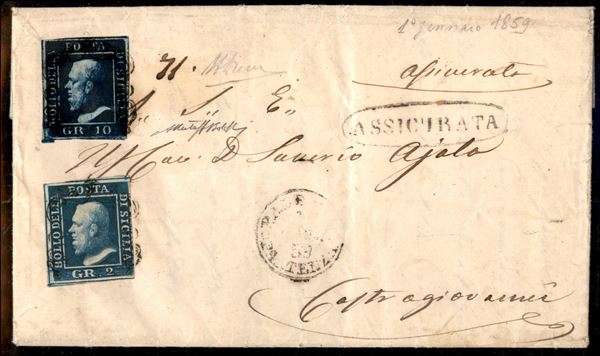 1° gennaio 1859
BOLLO DELLA POSTA DI SICILIA
GR. 10
71.
Assicurata
A. S. E.
ASSICURATA
D. Saverio Ajala
BOLLO DELLA POSTA DI SICILIA
GR. 2
Castrogiovanni